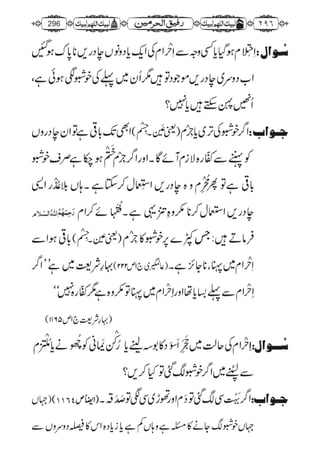 296 لبیک اللھم لبیک رفیق الحرمین لبیک اللھم لبیک ۲۹۶
سوال: اِحتِلام ہوگیا یا کسی وجہ سے اِحرام کی ایک یا دونوں چادریں ناپاک ہوگئیں
اب دوسری چادریں موجود تو ہیں مگر اُن میں پہلے کی خوشبو لگی ہوئی ہے،
اُنھیں پہن سکتے ہیں یا نہیں؟
جواب: اگر خوشبو کی تری یا جِرم (یعنی عین۔ جسم) ابھی تک باقی ہے تو ان چادروں
کو پہننے سے کفّارہ لازم آئے گا۔ اور اگر جِرم ختم ہوچکا ہے صرف خوشبو
باقی ہے تو پھر مُحرم وہ چادریں استعمال کرسکتا ہے۔ ہاں بلاعذر ایسی
چادریں استعمال کرنا مکروہِ تنزیہی ہے۔ فقہائے کرام رَحِمَہُمُ اللہُ السَّلَام
فرماتے ہیں: جس کپڑے پر خوشبو کا جِرم (یعنی عین۔ جسم) باقی ہو اسے
اِحرام میں پہننا، ناجائز ہے۔ (عالمگیری ج۱ ص۲۲۲) بہارِ شریعت میں ہے ’’اگر
اِحرام سے پہلے بسایا تھا اور اِحرام میں پہنا تو مکروہ ہے مگر کفّارہ نہیں‘‘
(بہارِ شریعت ج۱ ص ۱۱۶۵)
سوال: اِحرام کی حالت میں حجرِ اَسوَد کا بوسہ لینے یا رُکنِ یَمانی کو چھونے یا مُلتَزَم
سے لپٹنے میں اگر خوشبو لگ گئی تو کیا کریں؟
جواب: اگر بہت سی لگ گئی تو دَم اور تھوڑی سی لگی تو صَدَقہ۔ (ایضا ص ۱۱۶۴) (جہاں
جہاں خوشبو لگ جانے کا مسئلہ ہے وہاں کم ہے یا زیادہ اس کا فیصلہ دوسروں سے